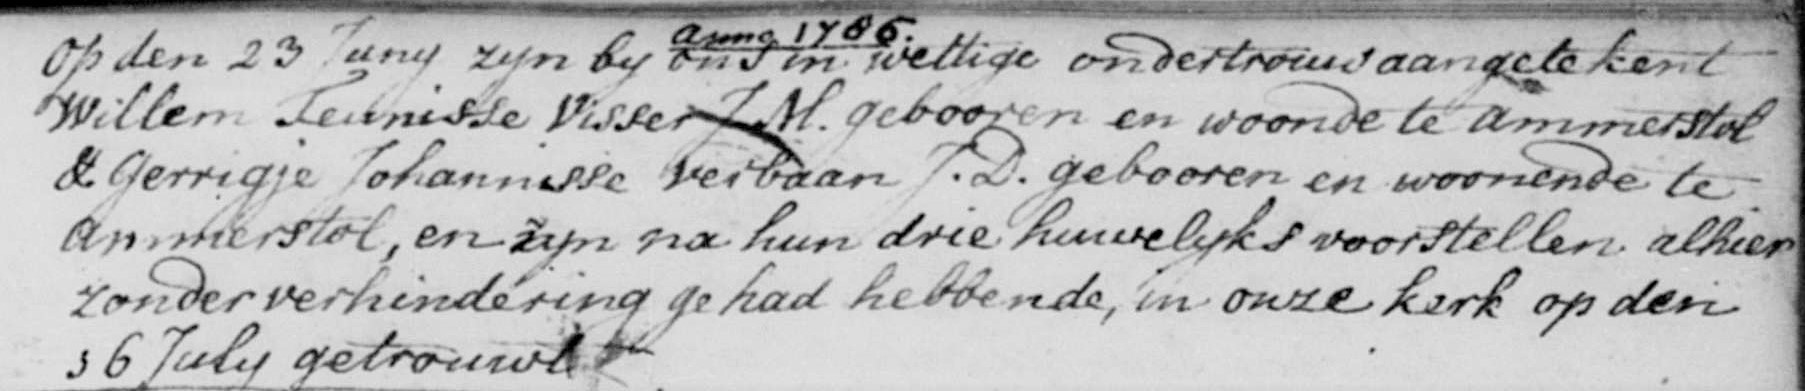 anno 1786.
Op den 23 Juny zyn by ons in wettige ondertrouw aangetekent
Willem Teunisse Visser J.M. gebooren en woonde te ammerstol
& Gerrigje Johannisse Verbaan J.D. gebooren en woonende te
ammerstol, en zyn na hun drie huwelyks voorstellen alhier
zonder verhindering gehad hebbende, in onze kerk op den
16 July getrouwt